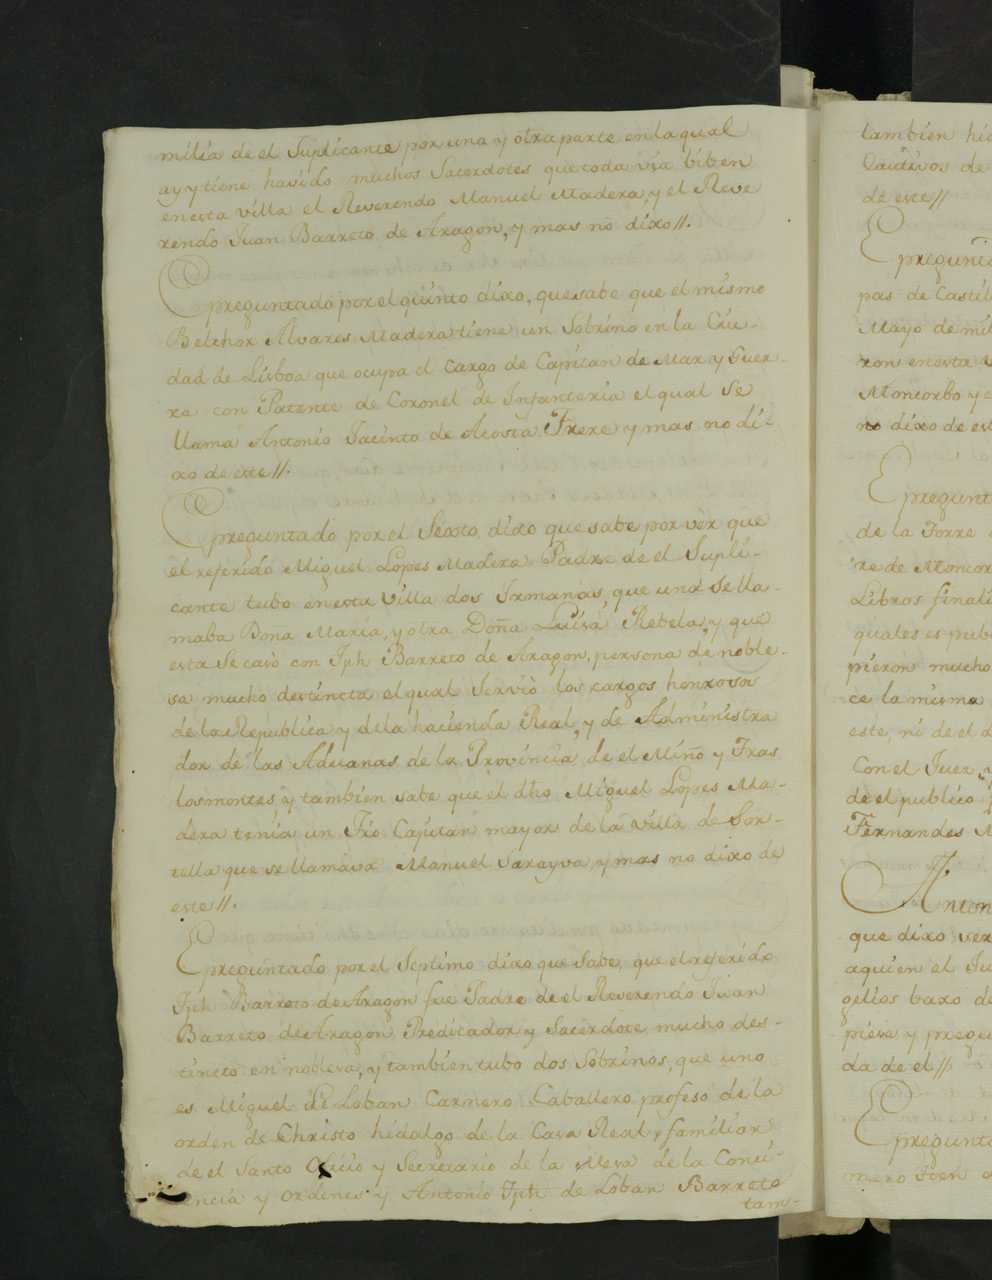 milia de el Suplicante por una y otra parte en la qual
ay y tiene havido muchos Sacerdotes que toda via biben
en esta villa el Reverendo Manuel Madera, y el Reve
rendo Juan Barreto de Aragon, y mas no dixo //.
E preguntado por el quinto dixo, que sabe que el mismo
Belchor Alvares Madera tiene un Sobrino en la Ciu-
dad de Lisboa que ocupa el Cargo de Capitan de Mar y Guer-
ra con Patente de Coronel de Infanteria el qual se
llama Antonio Jacinto de Acosta Frere y mas no di-
xo de este //.
E preguntado por el Sexto, dixo que sabe por ver que
el referido Miguel Lopes Madera Padre de el Supli-
cante tubo en esta Villa dos Irmanas, que una se lla-
maba Doña Maria, y otra Doña Luisa Rebela, y que
esta se casò con Jph Barreto de Aragon, persona de noble-
sa mucho destincta el qual Serviò los cargos honrosos
de la Republica y dela hacienda Real, y de Administra
dor de las Aduanas de la Provincia de el Miño y Tras
losmontes, y tambien sabe que el dho Miguel Lopes Ma-
dera tenia un Tio Capitan mayor de la Villa de Sor-
tella que se llamava Manuel Sarayva, y mas no dixo de
este //.
E preguntado por el Septimo dixo que Sabe, que el referido
Jph Barreto de Aragon fue Padre de el Reverendo Juan
Barreto de Aragon Predicador y Sacerdote mucho des-
tincto en noblesa, y tambien tubo dos Sobrinos, que uno
es Miguel de Loban Carnero Caballero profeso de la
orden de Christo hidalgo de la Casa Real, familiar
de el Santo Oficio y Secretario de la Mesa de la Conci-
encia y ordenes y Antonio Jph de Loban Barreto
tam-
tambien hid
Cautivos de
de este //
E pregunta
pas de Castil
Mayo de mil
ron en esta
Moncorbo y e
no dixo de est
E pregunt
de la Torre
re de Moncor
Libros finali
quales es pub
pieron mucho
ce la misma
este, ni de el d
Con el Juez, y
de el publico
Fernandes M
Anton
que dixo ver
aqui en el Ju
gelios baxo de
piese y pregu
da de el //
E pregunta
mero Iten